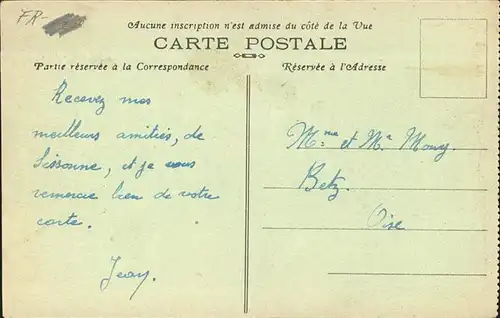 FR-
Aucune inscription n'est admise du côté de la Vue
CARTE POSTALE
Partie réservée à la Correspondance
Réservée à l'Adresse
Recevez mes
meilleurs amitiés, de
Sissonne, et je vous
remercie bien de votre
carte.
Jean.
Mme et Mr Mouy.
Betz.
Oise